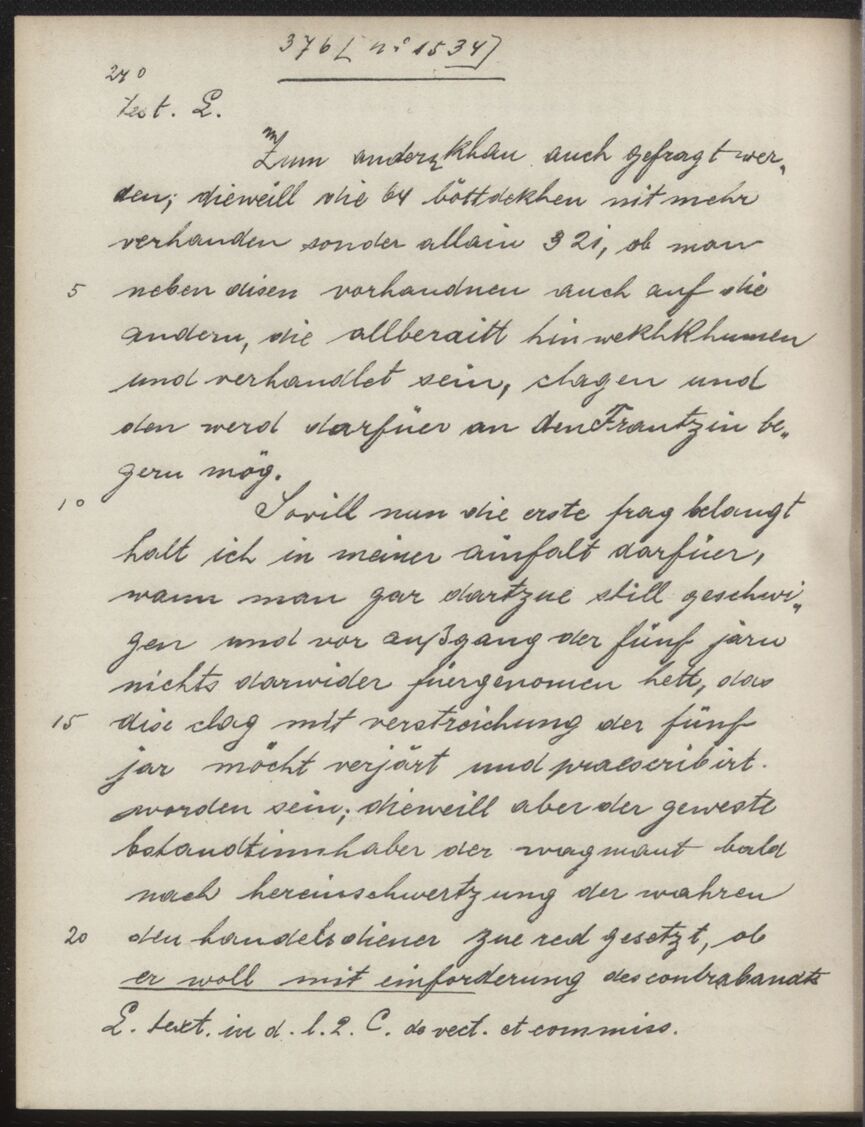 376 [n.º 1534]
24º
text. L.
Zum andern khan auch gefragt wer„
den; dieweill die 64 böttdekhen nit mehr
verhanden sonder allain 32i, ob man
5 neben disen vorhandnen auch auf die
andern, die allberaitt hinwekhkhumen
und verhandlet sein, clagen und
den werd darfüer an den Frantzin be„
gern mög.
10 Sovill nun die erste frag belangt
halt ich in meiner ainfalt darfüer,
wann man gar dartzue still geschwi„
gen und vor außgang der fünf jarn
nichts darwider füergenomen hett, das
15 dise clag mit verstreichung der fünf
jar möcht verjärt und praescribirt
worden sein; dieweill aber der geweste
bstandtinnhaber der wagmaut bald
nach hereinschwertzung der wahren
20 den handelsdiener zue red gesetzt, ob
er woll mit einforderung des contrabandts
L. text. in d. l. 2. C. de vect. et commiss.